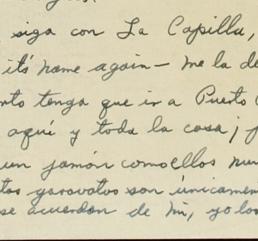 siga con La Capilla,
it's name again — me la de
nto tenga que ir a Puerto
aquí y toda la casa; ¡
un jamón como ellos nun
tos garavatos son únicamen
se acuerdan de mi, yo los